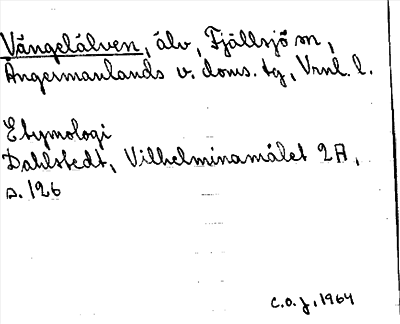 Vängelälven, älv, Fjällsjö sn,
Ångermanlands v. doms. tg, Vrnl. l.
Etymologi
Dahlstedt, Vilhelminamålet 2A,
s. 126
C.O.J., 1964